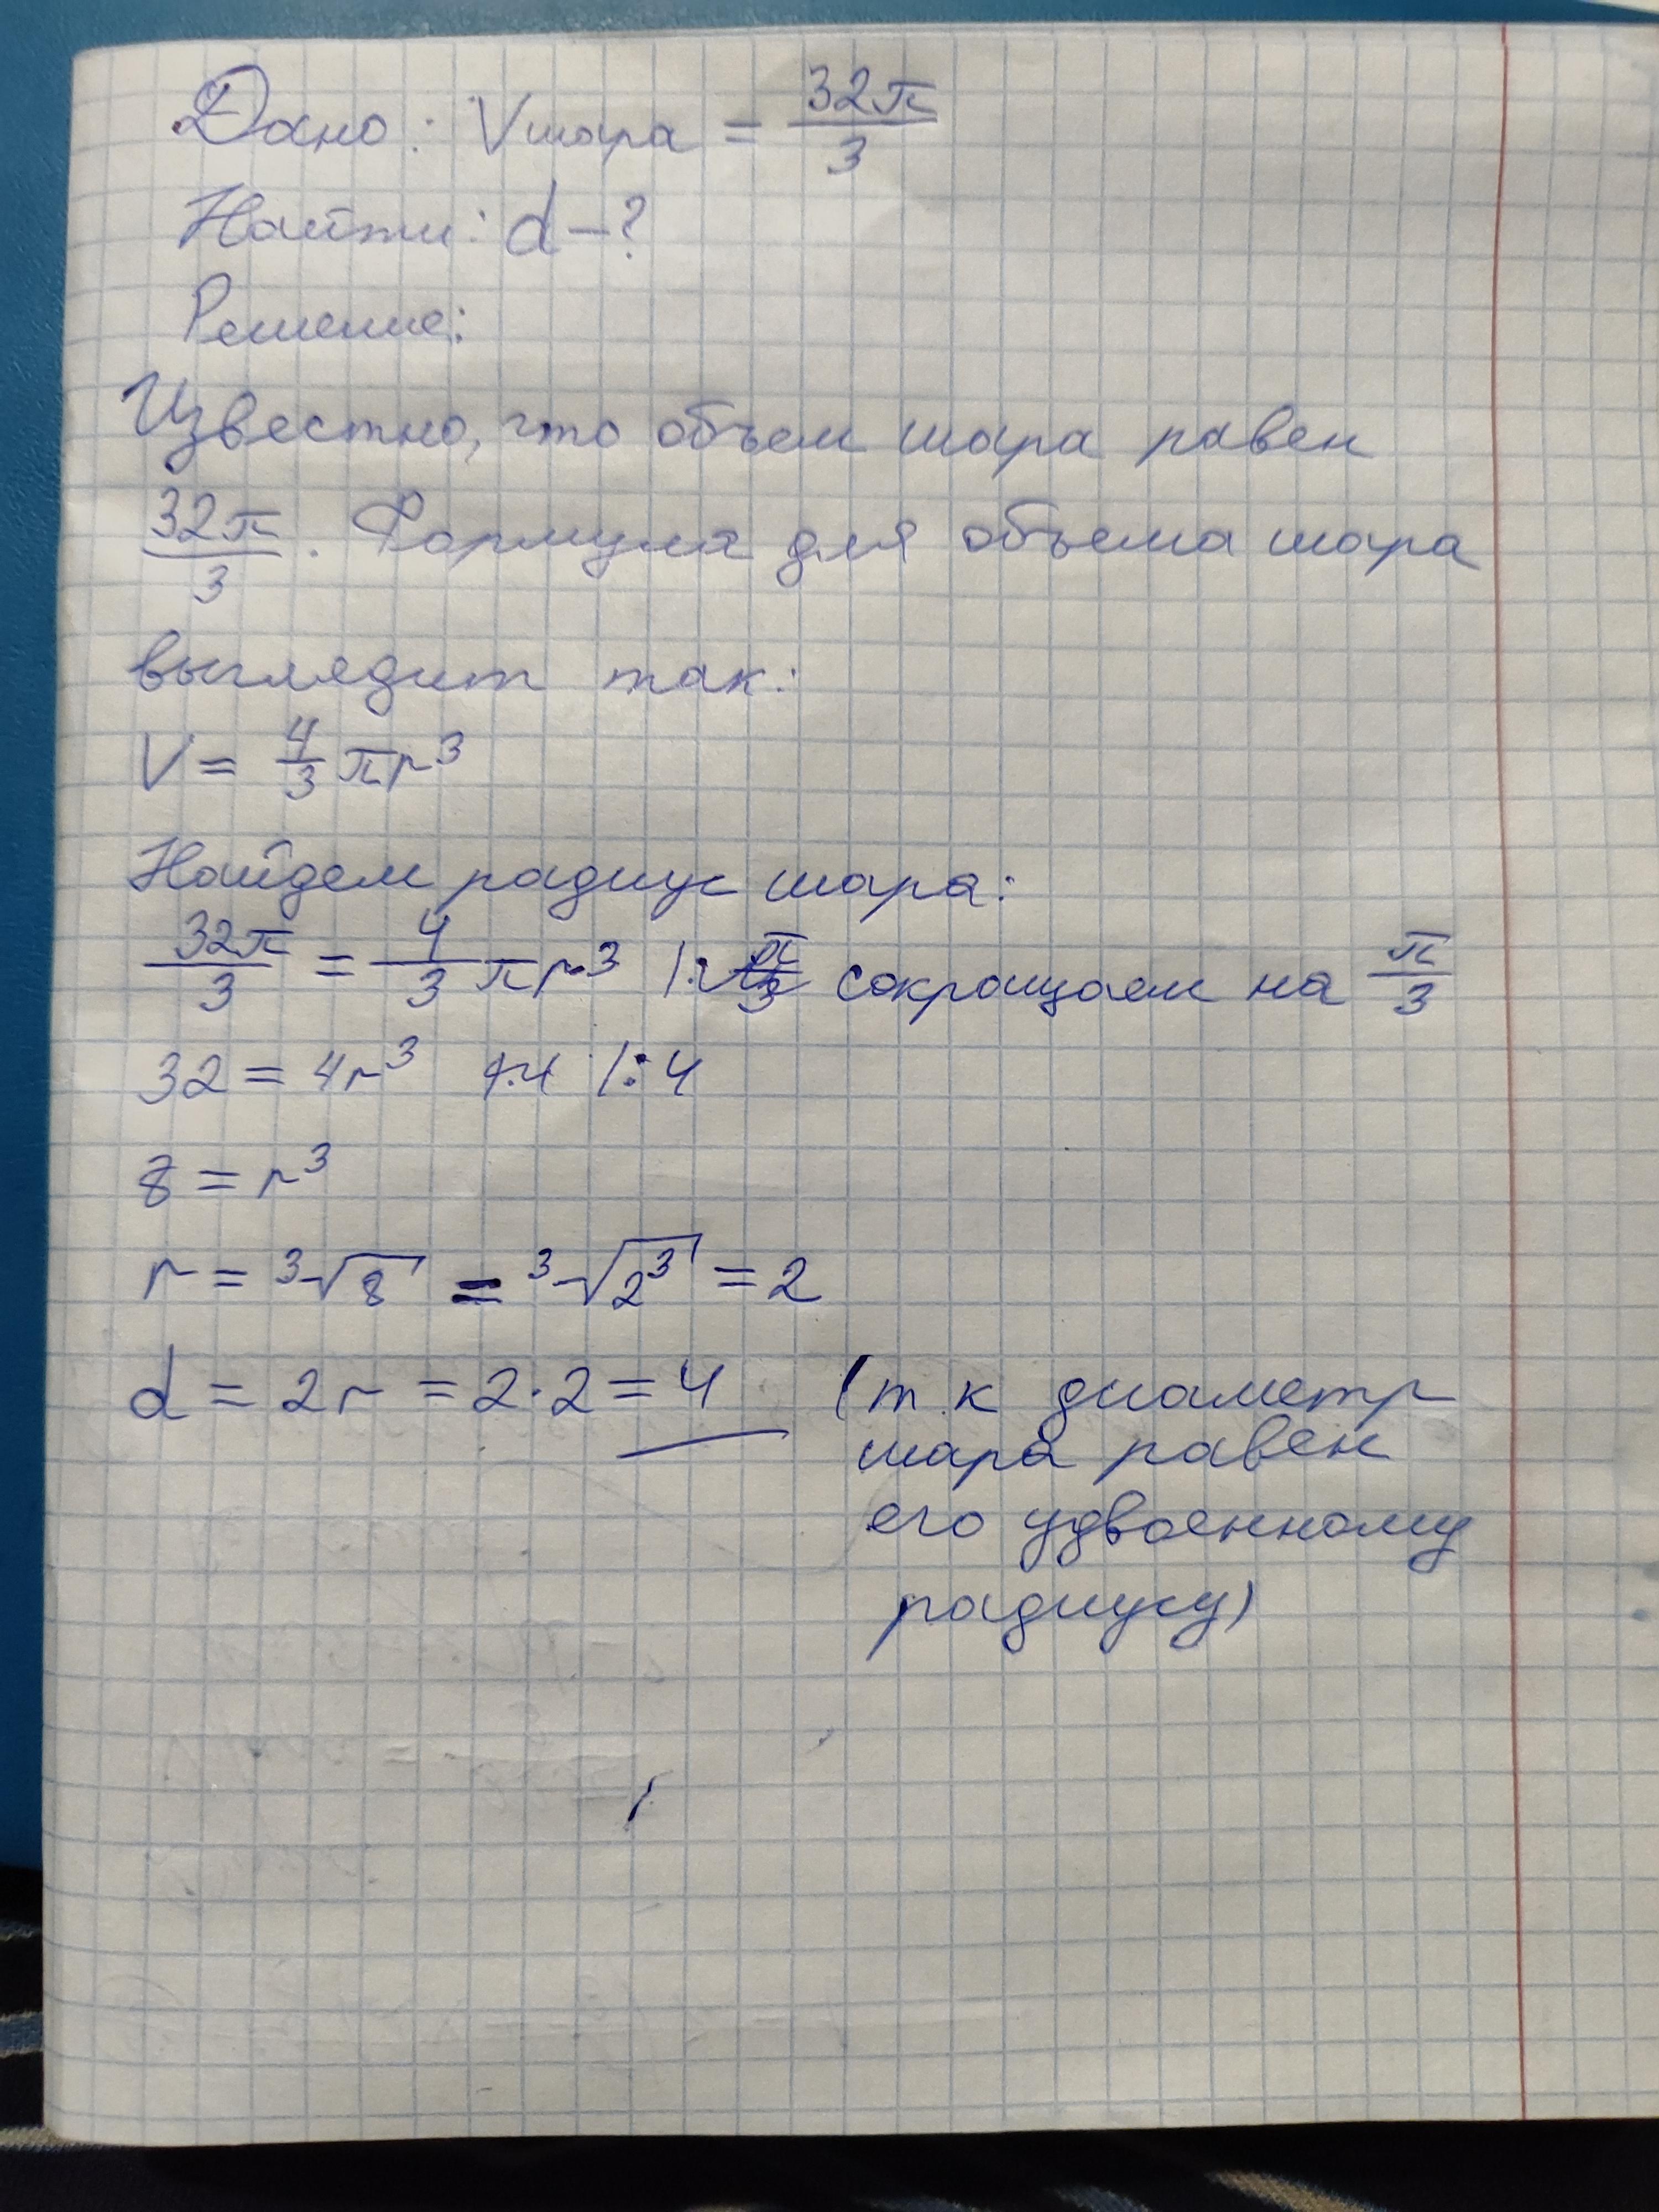 Дано: Vшара = 32π/3
Найти: d - ?
Решение:
Известно, что объем шара равен
32π/3. Формула для объема шара
выглядит так:
V = 4/3 πr³
Найдем радиус шара:
32π/3 = 4/3 πr³ |: π/3 сокращаем на π/3
32 = 4r³ |:4
8 = r³
r = ³√8 = ³√2³ = 2
d = 2r = 2·2 = 4 (т.к диаметр
шара равен
его удвоенному
радиусу)